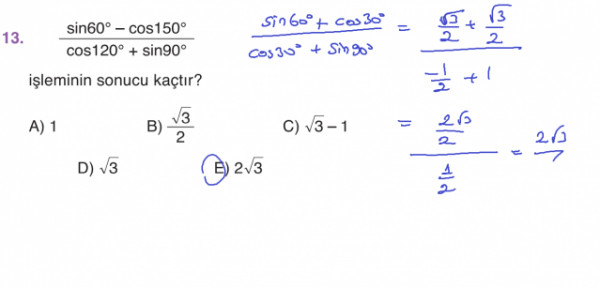 13. sin60° – cos150°
cos120° + sin90°
işleminin sonucu kaçtır?
A) 1 B) √3/2 C) √3 – 1
D) √3 E) 2√3
sin60° + cos30° = √3/2 + √3/2
cos30° + sin90° -1/2 + 1
= 2√3/2 = 2√3
1/2